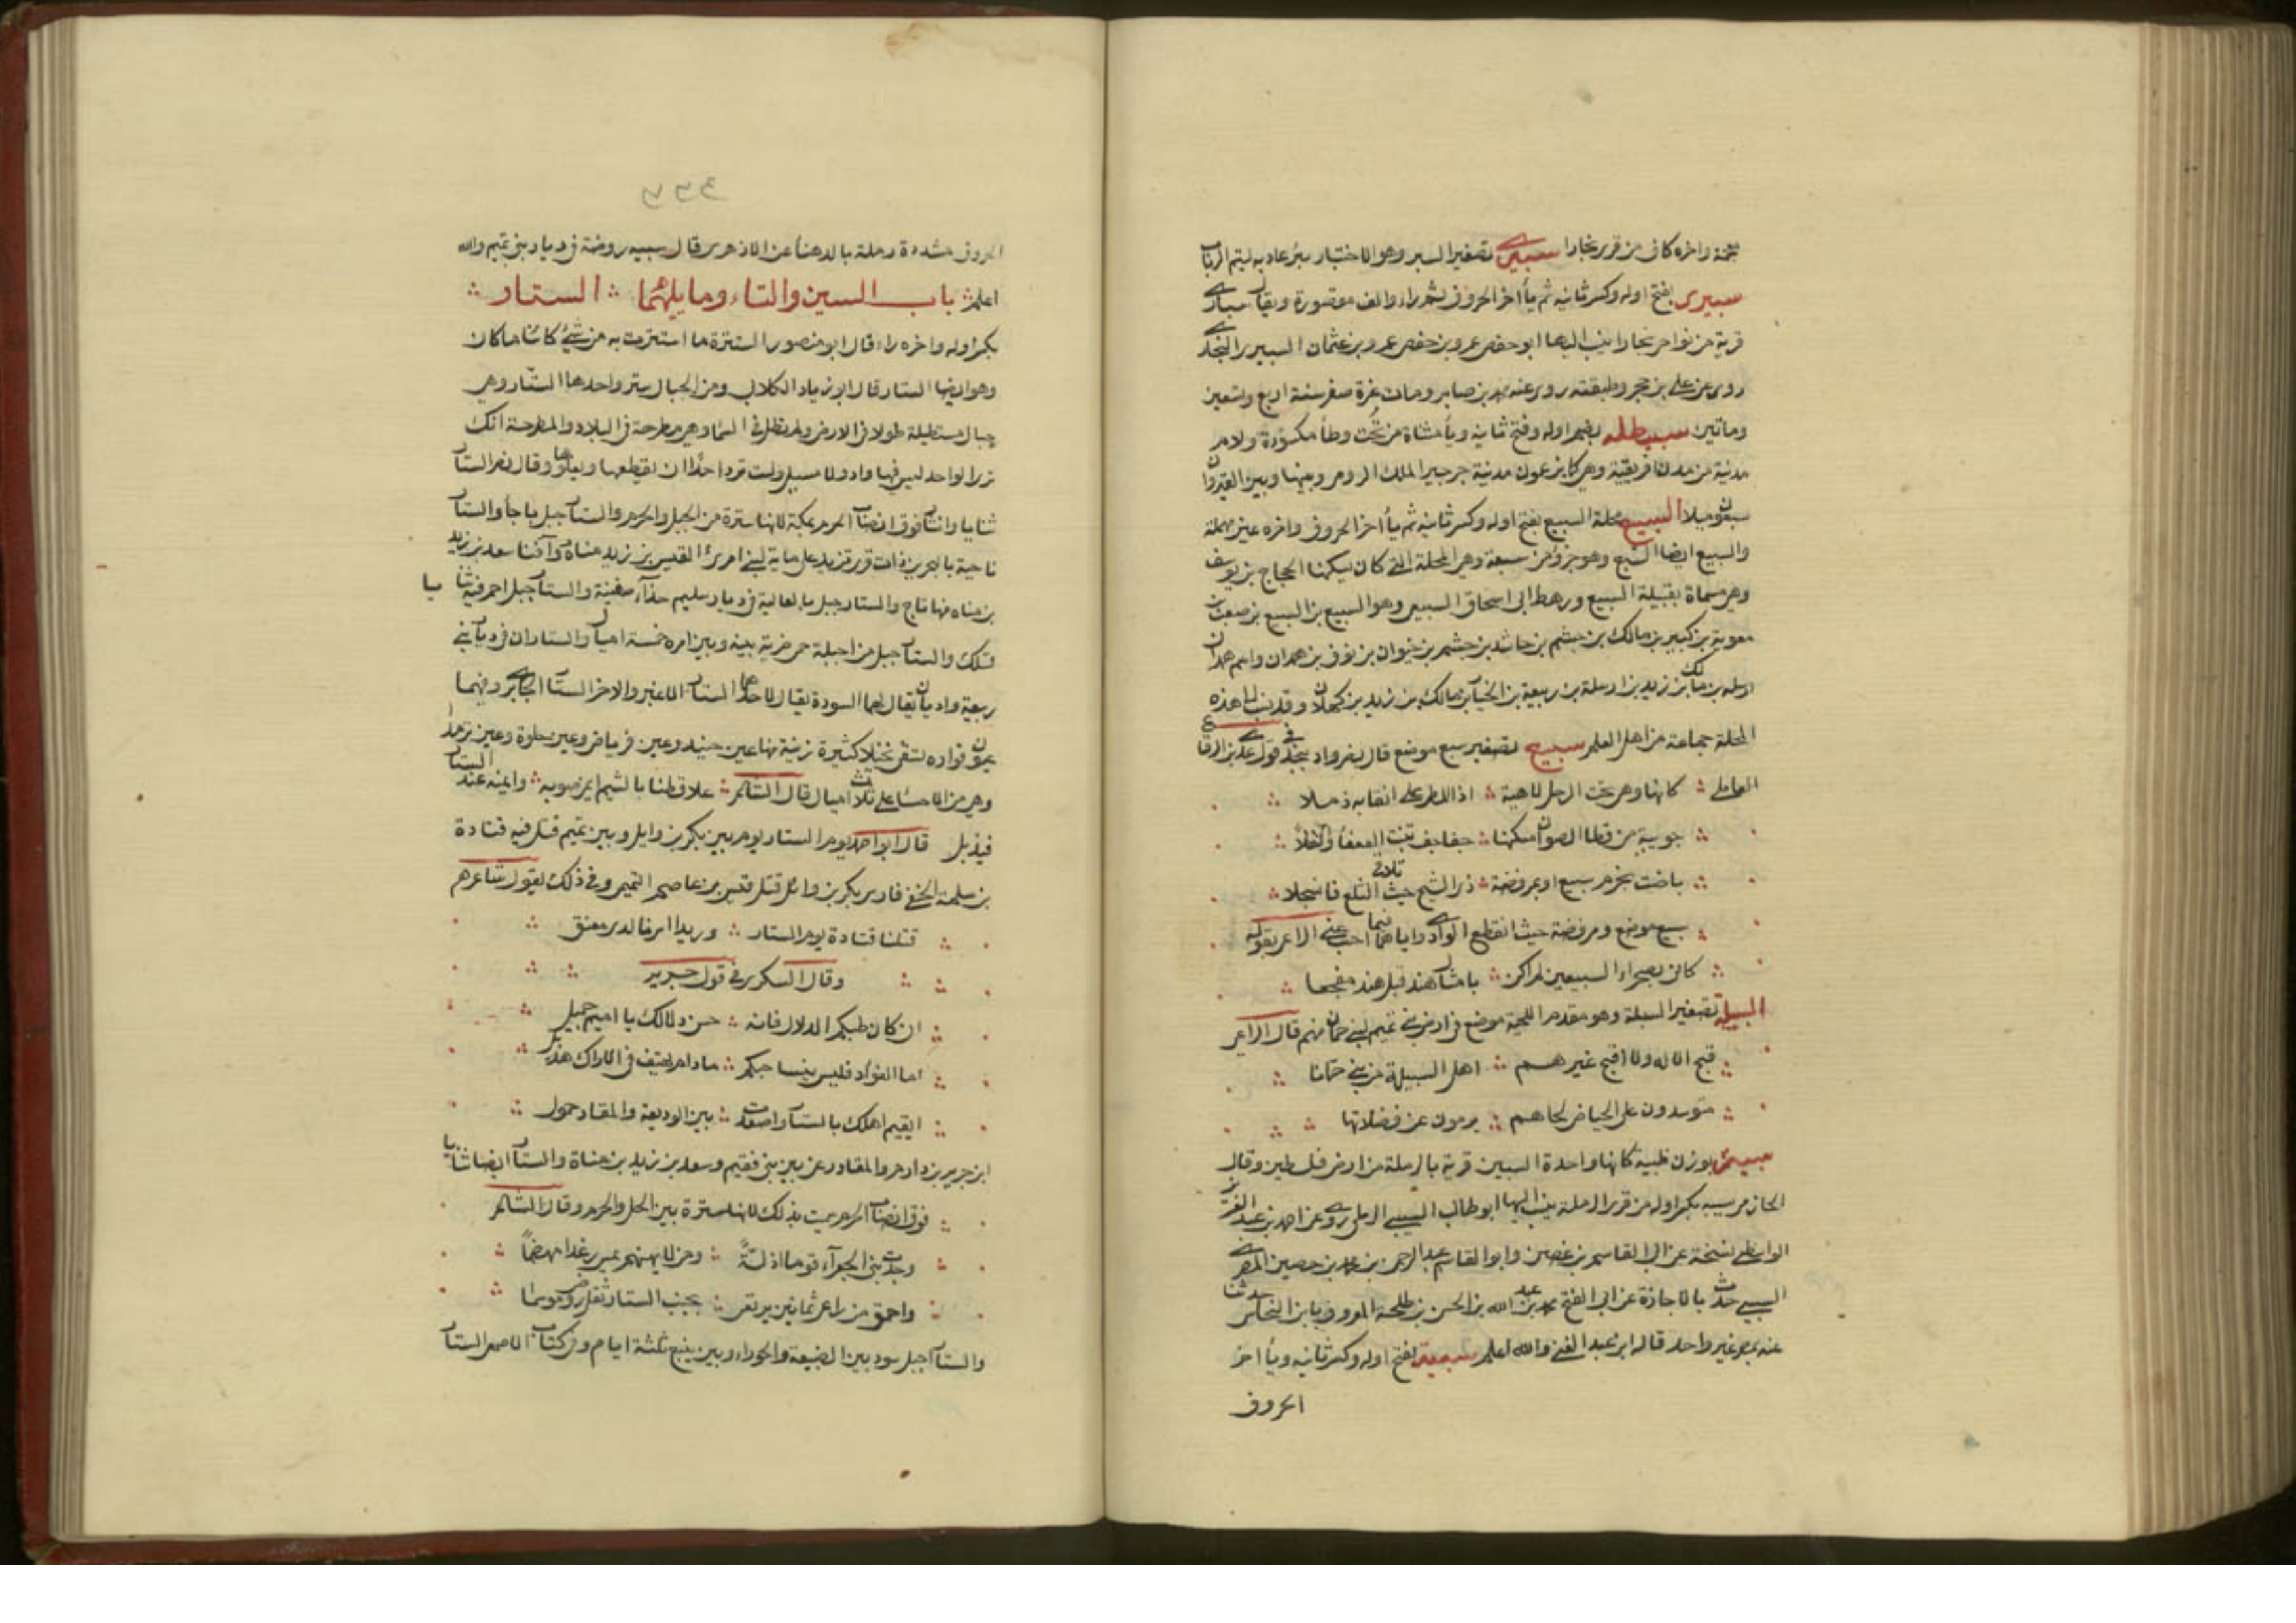 معجمة واخره كاف من قرى بخارا سبير تصغير السبر وهو الاختبار بير عادية لتيم الرباب
سبيرى بفتح اوله وكسر ثانيه ثم يأ اخر الحروف ثم راء والف مقصورة ويقال سبارى
قرية من نواحى بخارا ينسب اليها ابو حفص عمر وبن حفص عمر وبن عثمان السبيرى البخارى
روى عن على بن حجر وطبقته روى عنه محمد بن صابر ومات غرة صفر سنة اربع وتسعين
وماتين سبيطله بضم اوله وفتح ثانيه ويأ مثناة من تحت وطأ مكسورة ولام
مدينة من مدن افريقية وهى كما يزعمون مدينة جرجير الملك الرومى وبينها وبين القيروان
سبعون ميلا السبيع محلة السبيع بفتح اوله وكسر ثانيه ثم يأ اخر الحروف واخره عين مهملة
والسبيع ايضا السبع وهو جزؤ من سبعة وهى المحلة التى كان يسكنها الحجاج بن يوسف
وهى مسماة بقبيلة السبيع ورهط ابى اسحاق السبيعى وهو السبيع بن السبيع بن صعب بن
معوية بن كبير بن مالك بن جشم بن حاشد بن جشم بن خيوان بن نوف بن همدان واسم همدان
اوسله بن مالك بن زيد بن اوسلة بن ربيعة بن الخيار بن مالك بن زيد بن كهلان وقد نسب الى هذه
المحلة جماعة من اهل العلم سبيع تصغير سبع موضع قال نصر واد بنجد فى قول عدى بن الرقاع
العاملى كانها وهى تحت الرحل لاهية اذا المطى على انقابه ذملا
جوبية من قطا الصوان مسكنها جفاجف تنبت القفعا والنفلا
باضت بحزم سبيع او بمرفضة ذى الشيح حيث تلاقى التلع فانسجلا
سبيع موضع ومرفضة حيث انقطع الوادى واياهما فيما احب عنى الراعى بقوله
كانى بصحراء السبيعين لم اكن بامثال هند قبل هند مفجعا
السبيلة تصغير السبلة وهو مقدم اللحية موضع فى ارض بنى تميم لبنى حمان منهم قال الراعى
قبح الاله ولا اقبح غيرهم اهل السبيلة من بنى حمانا
متوسدون على الحياض لحاهم يرمون عن فضلاتها
سبيه بوزن ظبية كانها واحدة السبين قرية بالرملة من ارض فلسطين وقال
الحازمى سبيه بكسر اوله من قرى الرملة ينسب اليها ابو طالب السبيى الرملى روى عن احمد بن عبد العزيز
الواسطى نسخة عن ابى القاسم بن غصن وابو القاسم عبد الرحمن بن محمد بن حصين المصرى
السبيى حدث بالاجازة عن ابى الفتح محمد بن عبد الله بن الحسن بن طلحة المعروف بابن النخاس حدثنا
عنه بمصر غير واحد قاله ابن عبد الغنى والله اعلم سبية بفتح اوله وكسر ثانيه ويأ اخر
الحروف
الحروف مشددة رملة بالدهنأ عن الازهرى قال سبيه روضة فى ديار بنى تميم والله
اعلم باب السين والتاء وما يليهما الستار
بكسر اوله واخره راء قال ابو منصور السترة ما استترت به من شئ كائنا ما كان
وهو ايضا الستار قال ابو زياد الكلابى ومن الجبال ستر واحدها الستار وهى
جبال مستطيلة طولا فى الارض ولم تطل فى السماء وهى مطرحة فى البلاد والمطرحة انك
ترى الواحد ليس فيها واد ولا مسيل ولست ترى احدا ان يقطعها ويعلوها وقال نصر الستار
ثنايا وانشاز فوق انصاب الحرم بمكة لانها سترة من الجبل والحرم والستار جبل باجأ والستار
ناحية بالبحرين ذات قرى تزيد على ماية لبنى امرئ القيس بن زيد مناة وافنا سعد بن زيد
بن مناه منها ثاج والستار جبل بالعالية فى ديار سليم حذآء صفينة والستار جبل احمر فيه ثنايا
تسلك والستار جبل من اجبلة حمى ضرية بينه وبين امره خمسة اميال والستاران فى ديار بنى
ربيعة واديان يقال لهما السودة يقال لاحدهما الستار الاغبر والاخر الستار الجابرى وفيهما
عيون فوارة تسقى نخيلا كثيرة زينة منها عين حنيذ وعين فرياض وعين حلوة وعين ثرمدا
وهى من الاحساء على ثلاث اميال قال الشاعر علا قطنا بالشيم ايمن صوبه وايمنه عند الستار
فيذبل قال ابو احمد يوم الستار يوم بين بكر بن وايل وبين تميم قتل فيه قتادة
بن سلمة الحنفى فارس بكر بن وائل قتله قيس بن عاصم التميمى وفى ذلك يقول شاعرهم
قتلنا قتادة يوم الستار وزيدا اسرنا لدى معنق
وقال السكرى فى قول جرير
ان كان طبكم الدلال فانه حسن دلالك يا اميم جميل
اما الفواد فليس ينسا حبكم ما دام يهتف فى الاراك هديل
ايقيم اهلك بالستار واصعدت بين الوديعة والمقاد حمول
ابن جرير بن دارم والمقاد رعن بين بنى فقيم وسعد بن زيد بن مناة والستار ايضا ثنايا
فوق انصاب الحرم سميت بذلك لانها سترة بين الحل والحرم وقال الشاعر
وجدت بنى الجعرآء قوما اذلة ومن لا يهنهم يمس وغدا مهضما
واحمق من راعى ثمانين يرتعى بجنب الستار بقل روض موسما
والستار اجبل سود بين الضيعة والحوراء وبين ينبع ثلثة ايام وفى كتاب الاصمعى الستار